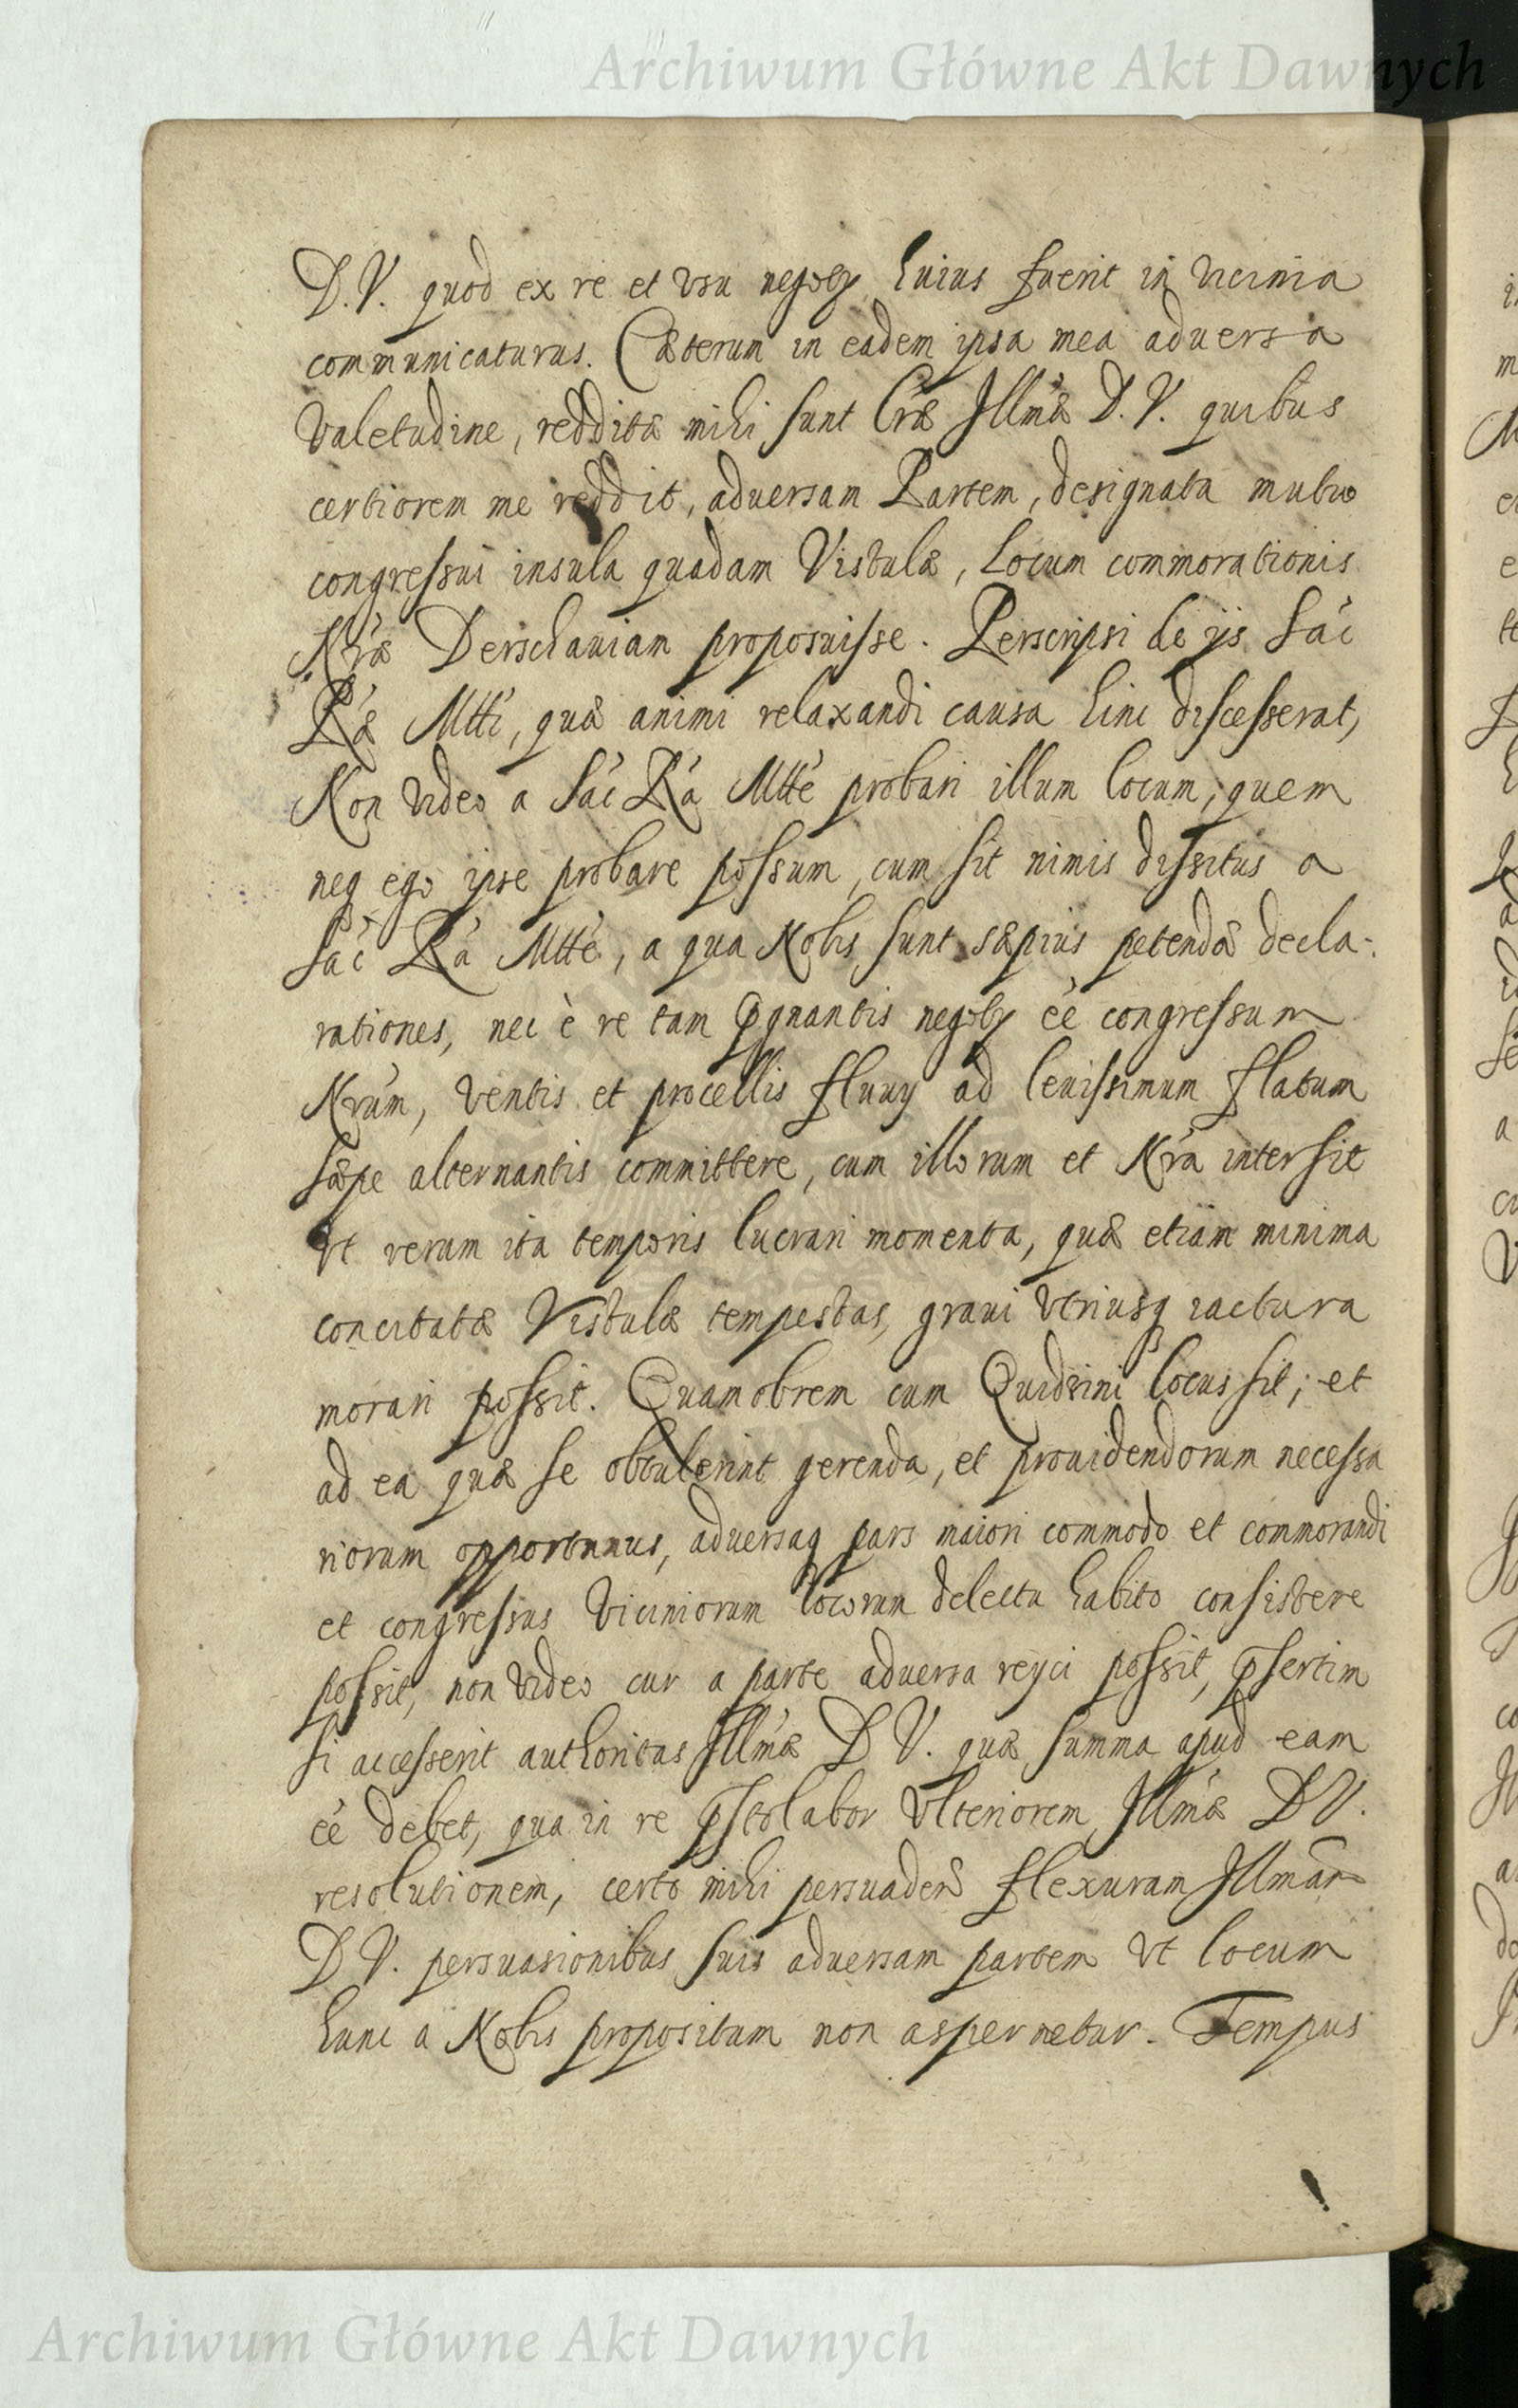 Archiwum Główne Akt Dawnych
D. V. quod ex re et vsu negoty huius fuerit in vicinia
communicaturus. Cæterum in eadem ipsa mea aduersa
valetudine, redditæ mihi sunt lræ Illmæ D. V. quibus
certiorem me reddit, aduersam Partem, designata mutuo
congressui insula quadam Vistulæ, Locum commorationis
Nræ Derschauiam proposuisse. Perscripsi de ijs Sac
Ræ Mtti, quæ animi relaxandi causa hinc discesserat,
Non video a Sac Rá Mtte probari illum locum, quem
neq ego ipse probare possum, cum sit nimis dissitus a
Sac Rá Mtte, a qua Nobis sunt sæpius petendæ decla-
rationes, nec è re tam pgnantis negoty eé congressum
Nrum, ventis et procellis fluuy ad leuissimum flatum
sæpe alternantis committere, cum illorum et Nra intersit
vt rerum ita temporis lucrari momenta, quæ etiam minima
concitatæ Vistulæ tempestas, graui vtriusq iactura
morari possit. Quamobrem cum Quidsini locus sit; et
ad ea quæ se obtulerint gerenda, et prouidendorum necessa
riorum opportunus, aduersaq pars maiori commodo et commorandi
et congressus viciniorum locorum delectu habito consistere
possit, non video cur a parte aduersa reijci possit, psertim
si accesserit authoritas Illmæ D V. quæ summa apud eam
eé debet, qua in re pstolabor vlteriorem Illmæ D V.
resolutionem, certo mihi persuadens flexuram Illmam
D V. persuasionibus suis aduersam partem vt locum
hunc a Nobis propositum non aspernetur. Tempus
Archiwum Główne Akt Dawnych